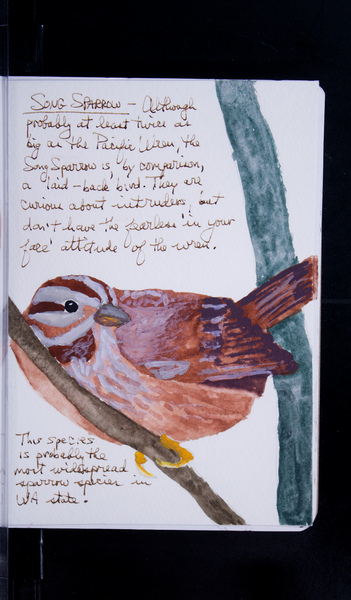 Song Sparrow – Although
probably at least twice as
big as the Pacific Wren, the
Song Sparrow is, by comparison,
a 'laid-back' bird. They are
curious about intruders, but
don't have the fearless 'in your
face' attitude of the wren.
This species
is probably the
most widespread
sparrow species in
WA state.